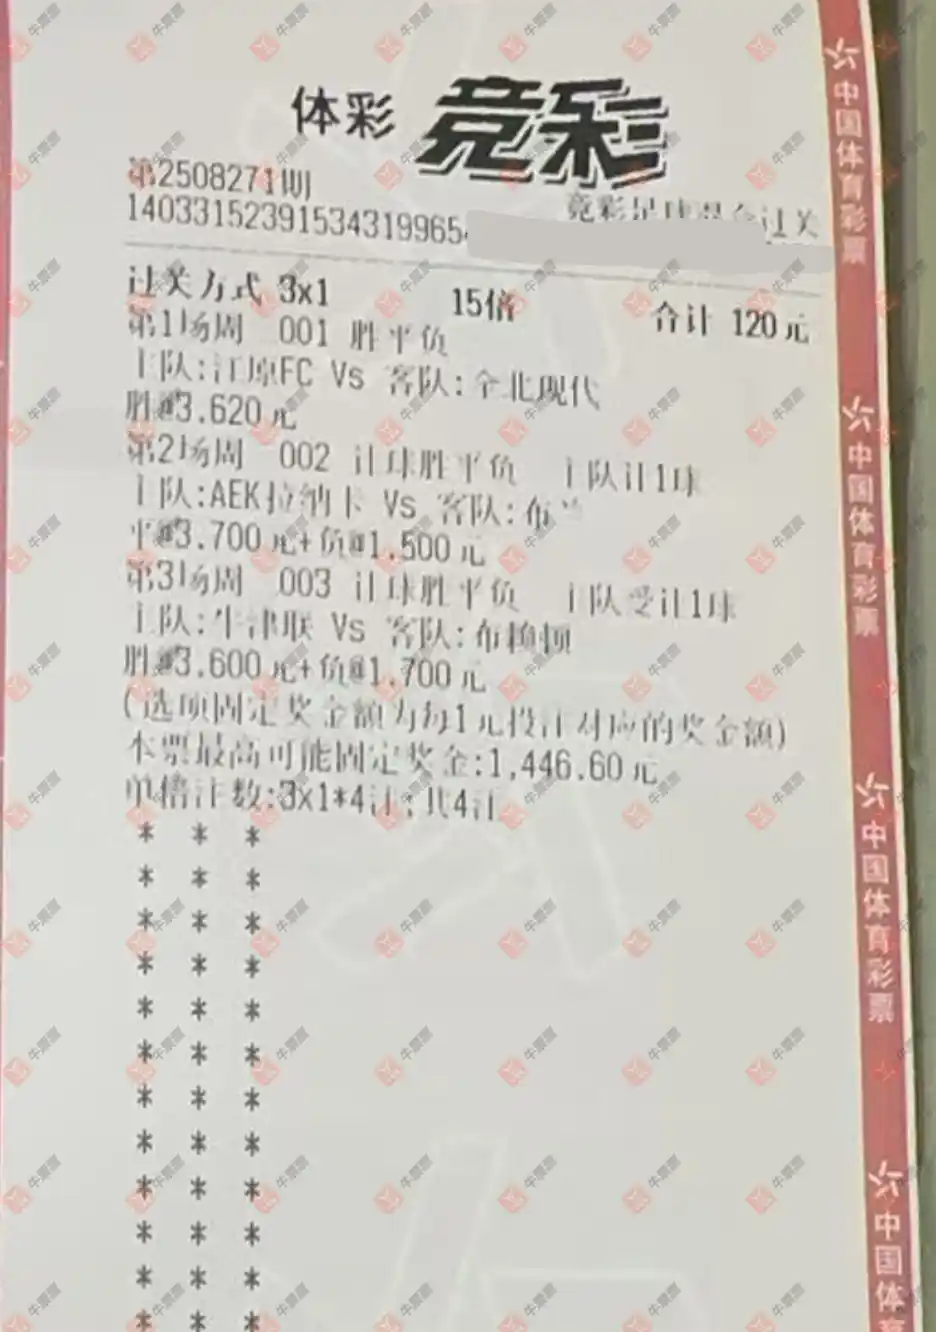 体彩 竞彩
第2508271期
竞彩足球混合过关
14033152391534319965
过关方式 3x1 15倍 合计 120元
第1场周 001 胜平负
主队:江原FC Vs 客队:全北现代
胜@3.620元
第2场周 002 让球胜平负 主队让1球
主队:AEK拉纳卡 Vs 客队:布兰
平@3.700元+负@1.500元
第3场周 003 让球胜平负 主队受让1球
主队:牛津联 Vs 客队:布赖顿
胜@3.600元+负@1.700元
(选项固定奖金额为每1元投注对应的奖金额)
本票最高可能固定奖金:1,446.60元
单倍注数:3x1*4注;共4注
* * *
* * *
* * *
* * *
* * *
* * *
* * *
* * *
* * *
* * *
* * *
* * *
中国体育彩票
中国体育彩票
中国体育彩票
中国体育
牛票票